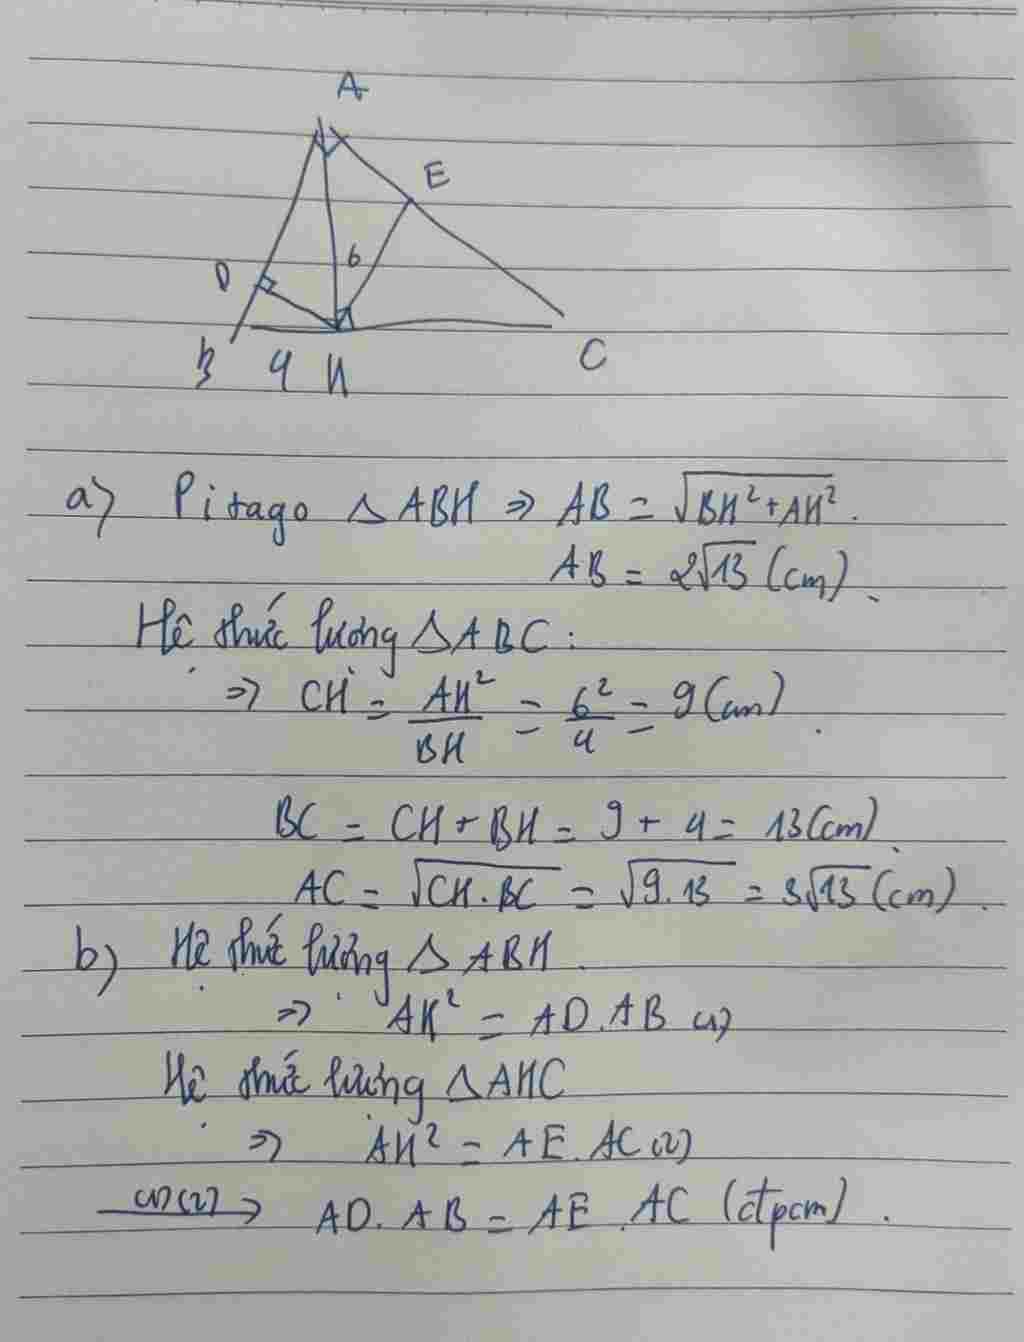 A
E
D
6
B 4 H
C
a) Pitago △ABH => AB = √(BH² + AH²).
AB = 2√13 (cm).
Hệ thức lượng △ABC:
=> CH = AH²/BH = 6²/4 = 9 (cm).
BC = CH + BH = 9 + 4 = 13 (cm).
AC = √(CH.BC) = √(9.13) = 3√13 (cm).
b) Hệ thức lượng △ABH.
=> AH² = AD.AB (1)
Hệ thức lượng △AHC
=> AH² = AE.AC (2)
(1)(2) → AD.AB = AE.AC (đpcm).